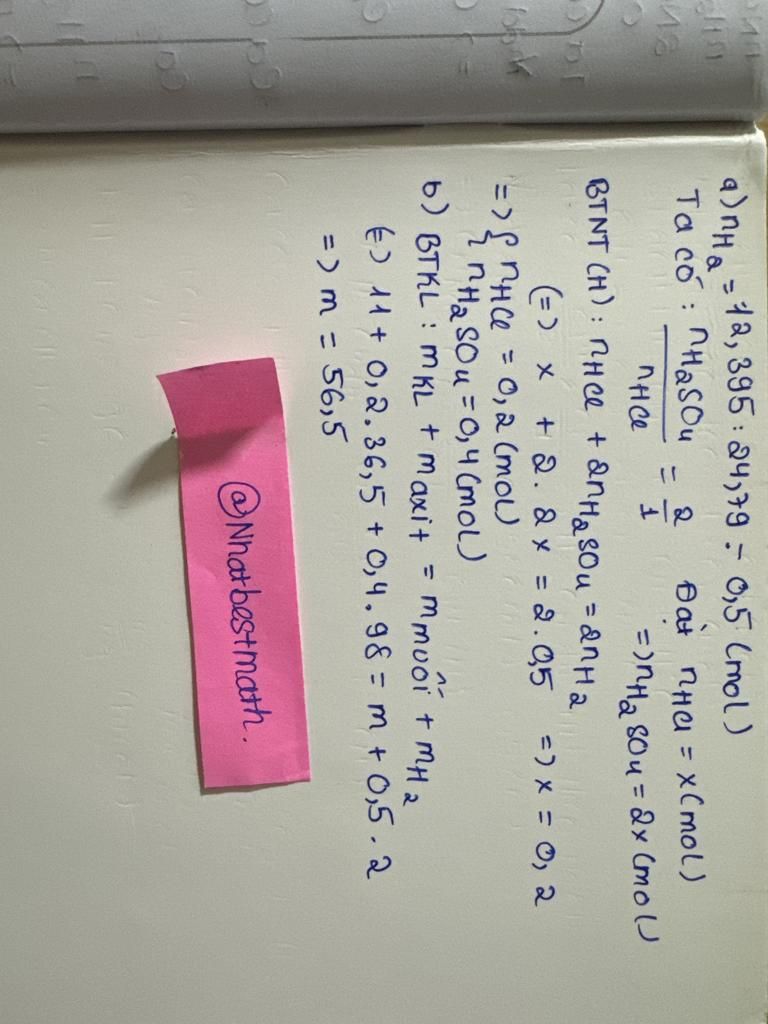 a) nH2 = 12,395 : 24,79 = 0,5 (mol)
Ta có : nH2SO4 / nHCl = 2/1 Đặt nHCl = x (mol)
=> nH2SO4 = 2x (mol)
BTNT (H) : nHCl + 2nH2SO4 = 2nH2
(=) x + 2. 2x = 2. 0,5 => x = 0,2
=> { nHCl = 0,2 (mol)
{ nH2SO4 = 0,4 (mol)
b) BTKL : mKL + maxit = mmuối + mH2
(=) 11 + 0,2. 36,5 + 0,4. 98 = m + 0,5. 2
=> m = 56,5
@Nhatbestmath.